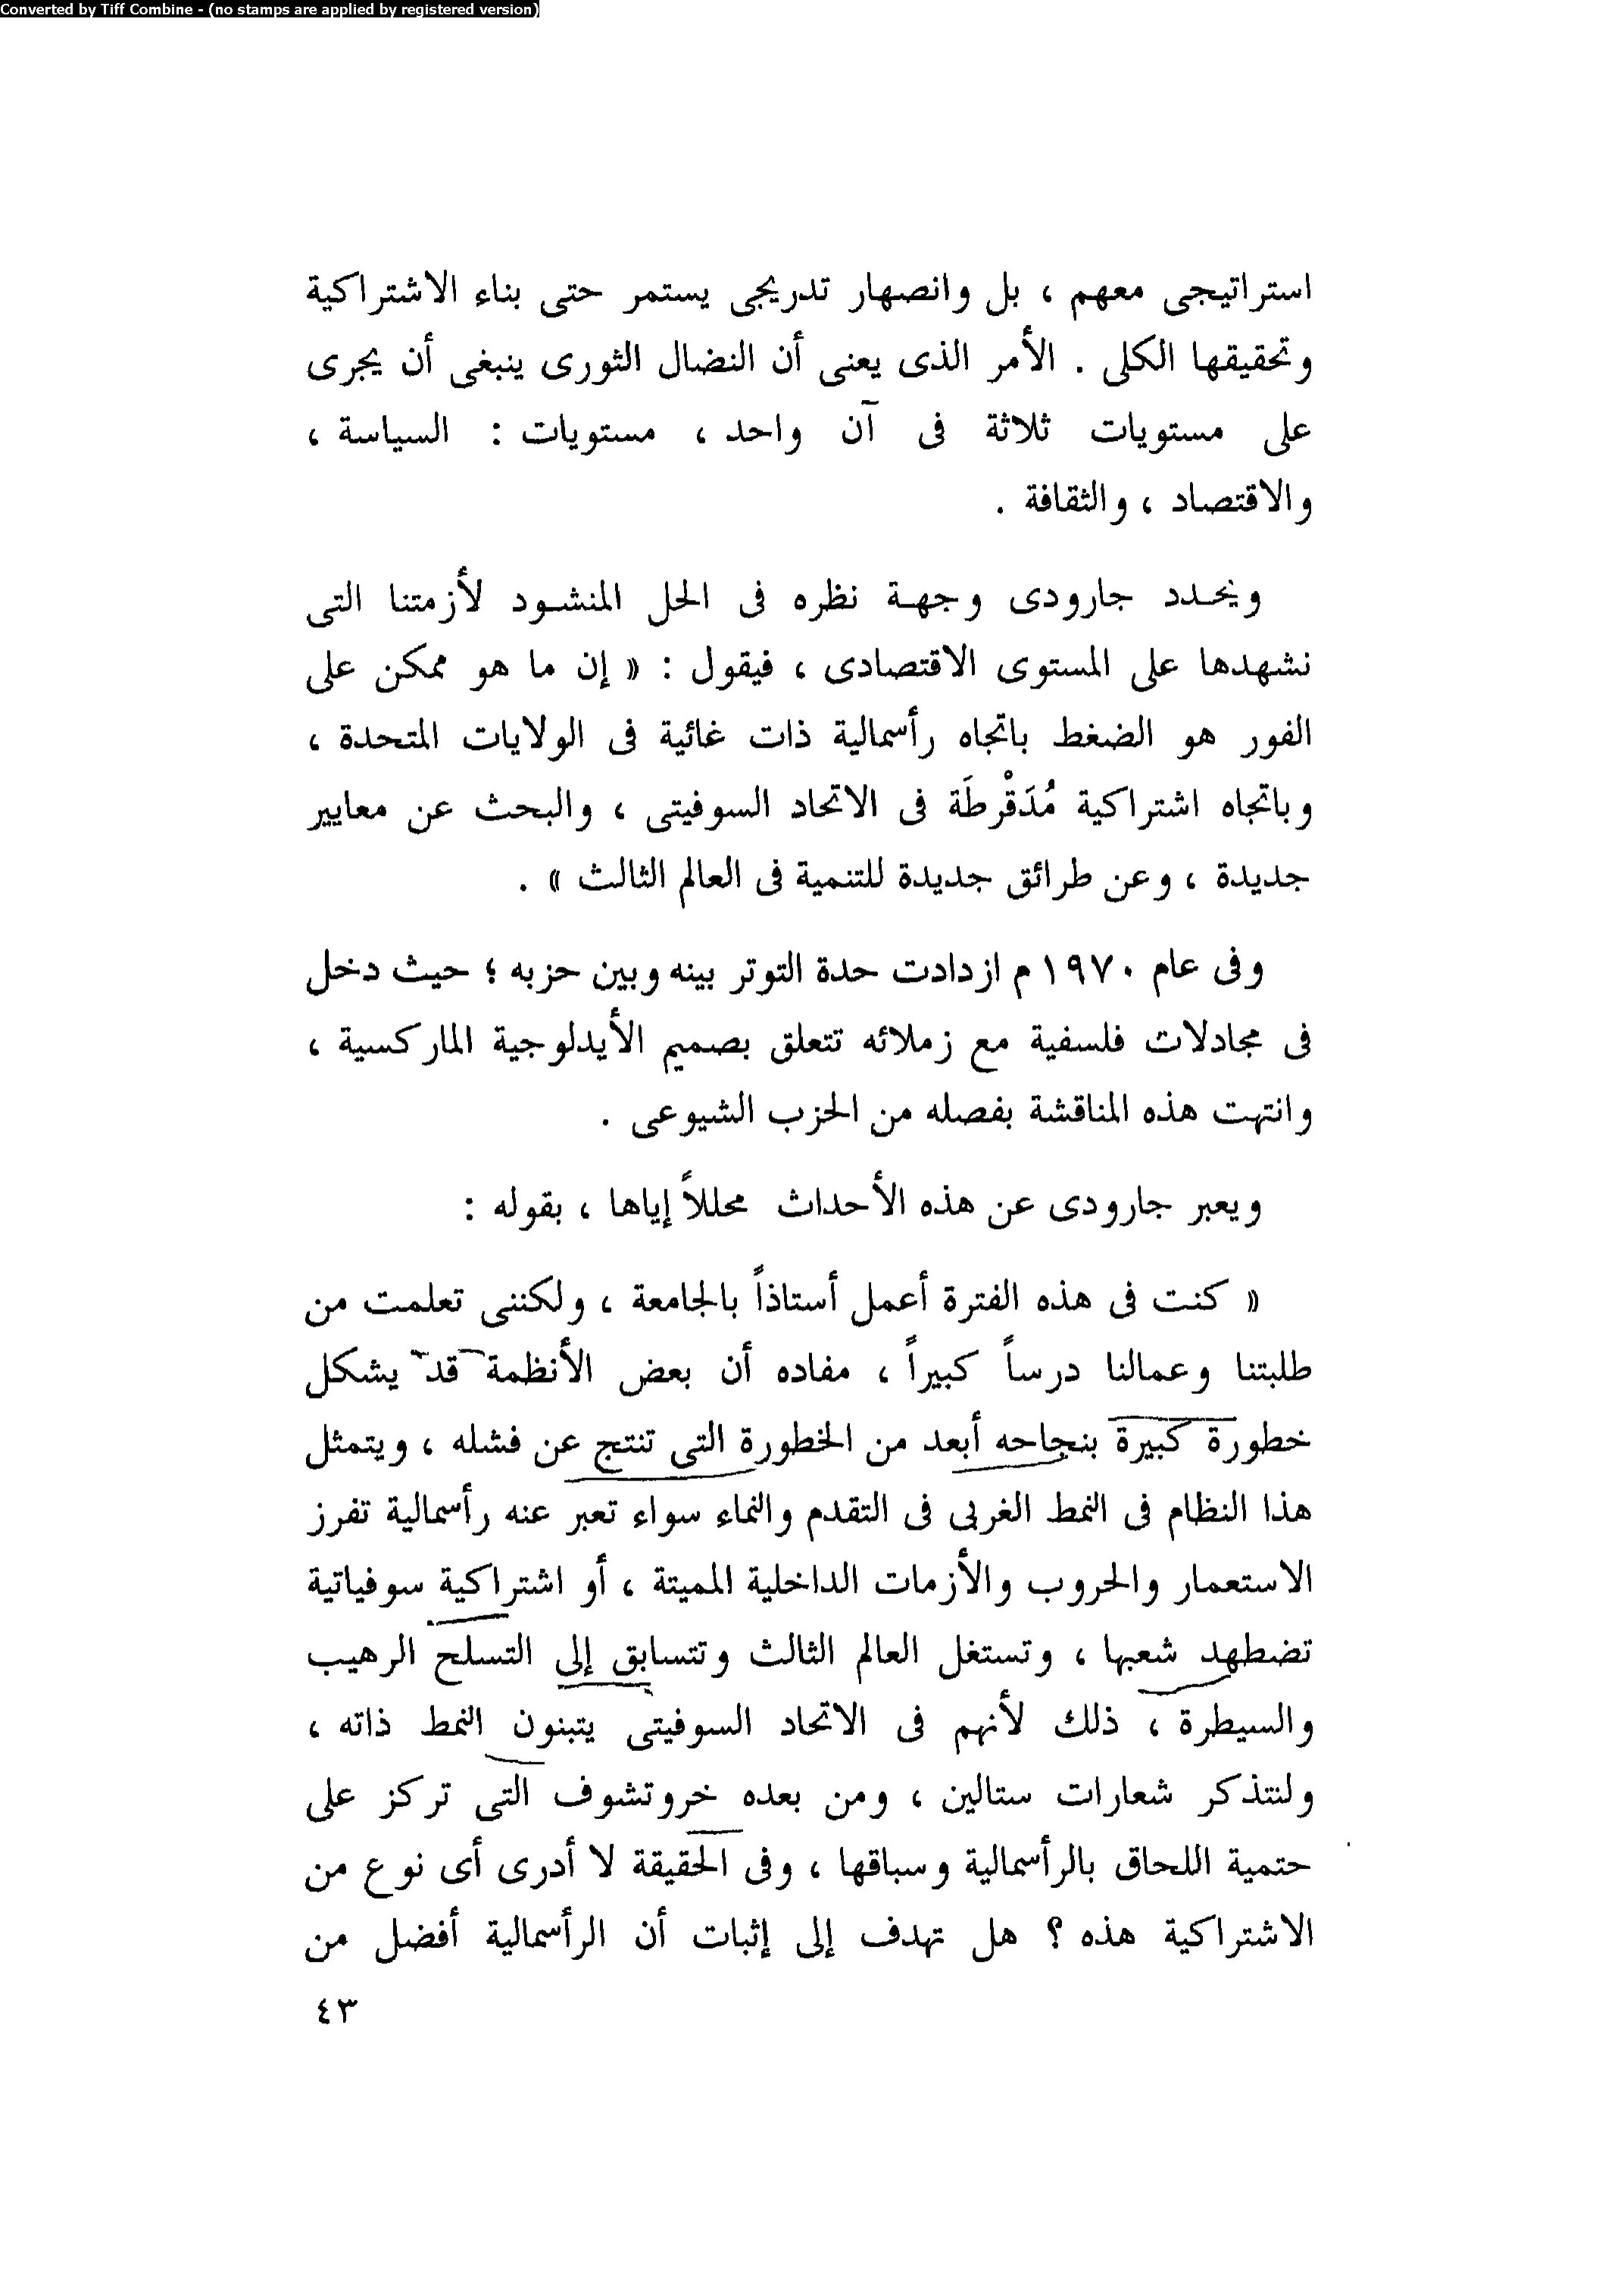 Converted by Tiff Combine - (no stamps are applied by registered version)
استراتيجى معهم ، بل وانصهار تدريجى يستمر حتى بناء الاشتراكية
وتحقيقها الكلى . الأمر الذى يعنى أن النضال الثورى ينبغى أن يجرى
على مستويات ثلاثة فى آن واحد ، مستويات : السياسة ،
والاقتصاد ، والثقافة .
ويحدد جارودى وجهة نظره فى الحل المنشود لأزمتنا التى
نشهدها على المستوى الاقتصادى ، فيقول : « إن ما هو ممكن على
الفور هو الضغط باتجاه رأسمالية ذات غائية فى الولايات المتحدة ،
وباتجاه اشتراكية مُدَقْرطَة فى الاتحاد السوفيتى ، والبحث عن معايير
جديدة ، وعن طرائق جديدة للتنمية فى العالم الثالث » .
وفى عام ١٩٧٠ م ازدادت حدة التوتر بينه وبين حزبه ؛ حيث دخل
فى مجادلات فلسفية مع زملائه تتعلق بصميم الأيدلوجية الماركسية ،
وانتهت هذه المناقشة بفصله من الحزب الشيوعى .
ويعبر جارودى عن هذه الأحداث محللاً إياها ، بقوله :
« كنت فى هذه الفترة أعمل أستاذاً بالجامعة ، ولكننى تعلمت من
طلبتنا وعمالنا درساً كبيراً ، مفاده أن بعض الأنظمة قد يشكل
خطورة كبيرة بنجاحه أبعد من الخطورة التى تنتج عن فشله ، ويتمثل
هذا النظام فى النمط الغربى فى التقدم والنماء سواء تعبر عنه رأسمالية تفرز
الاستعمار والحروب والأزمات الداخلية المميتة ، أو اشتراكية سوفياتية
تضطهد شعبها ، وتستغل العالم الثالث وتتسابق إلى التسلح الرهيب
والسيطرة ، ذلك لأنهم فى الاتحاد السوفيتى يتبنون النمط ذاته ،
ولنتذكر شعارات ستالين ، ومن بعده خروتشوف التى تركز على
حتمية اللحاق بالرأسمالية وسباقها ، وفى الحقيقة لا أدرى أى نوع من
الاشتراكية هذه ؟ هل تهدف إلى إثبات أن الرأسمالية أفضل من
٤٣